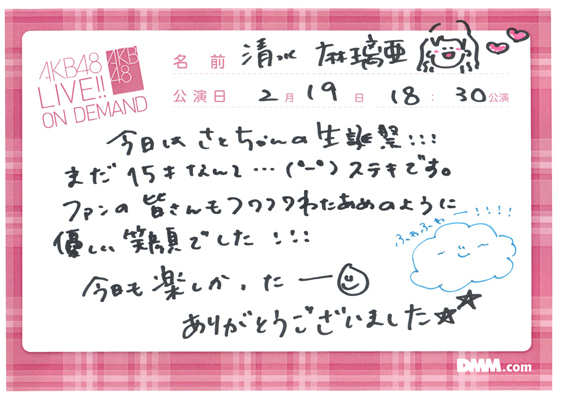 AKB48
LIVE!!
ON DEMAND
AKB
48
名 前 清水 麻璃亜
公演日 2月 19日 18:30公演
今日はさとちゃんの生誕祭!!!
まだ15才なんて…(°ー°)ステキです。
ファンの皆さんもフワフワわたあめのように
優しい笑顔でした!!!
ふわふわー!!!!
今日も楽しかったー
ありがとうございました☆★
DMM.com